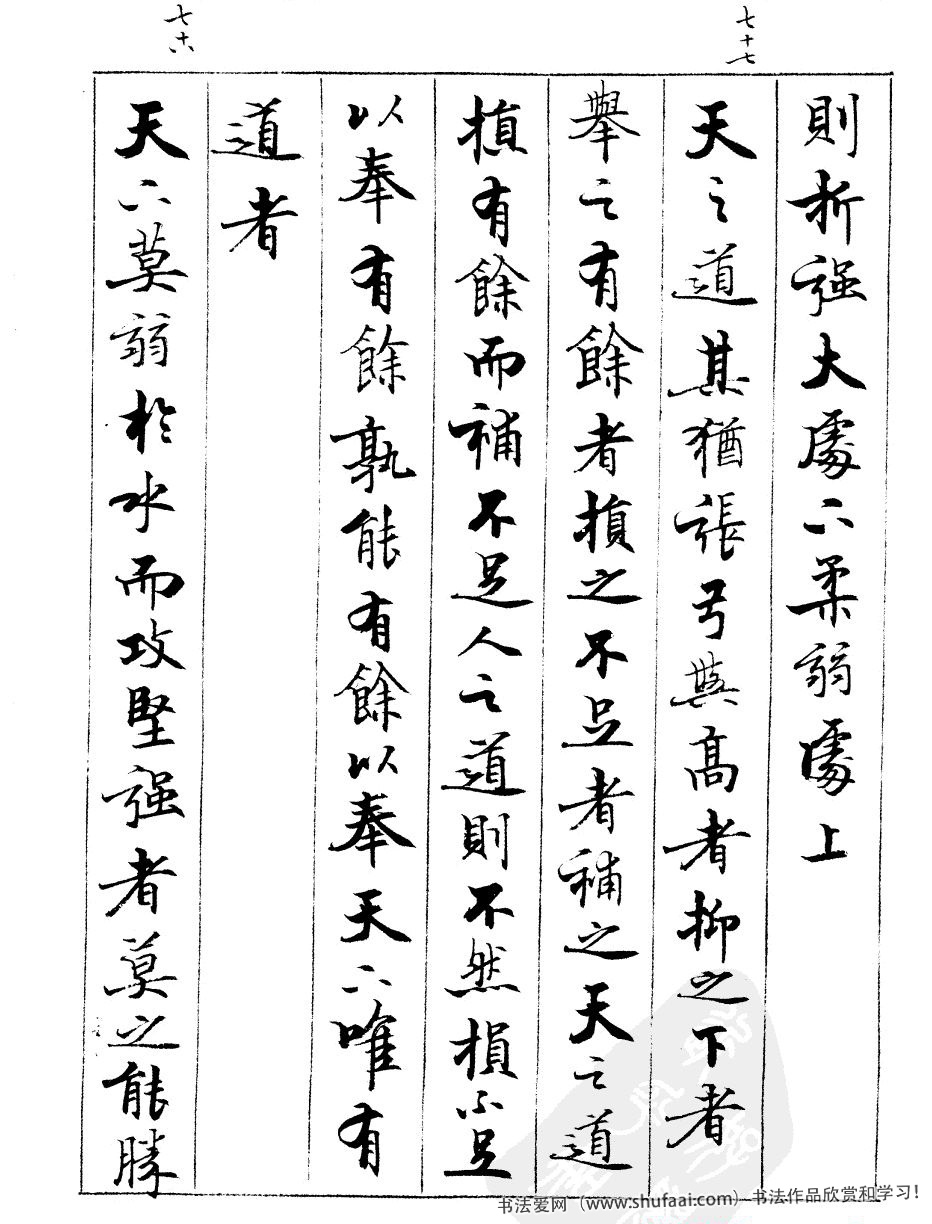 七十七
則折强大處下柔弱處上
天之道其猶張弓與高者抑之下者
舉之有餘者損之不足者補之天之道
損有餘而補不足人之道則不然損不足
以奉有餘孰能有餘以奉天下唯有
道者
七十八
天下莫弱於水而攻堅强者莫之能勝
书法爱网（www.shufaai.com）-书法作品欣赏和学习！